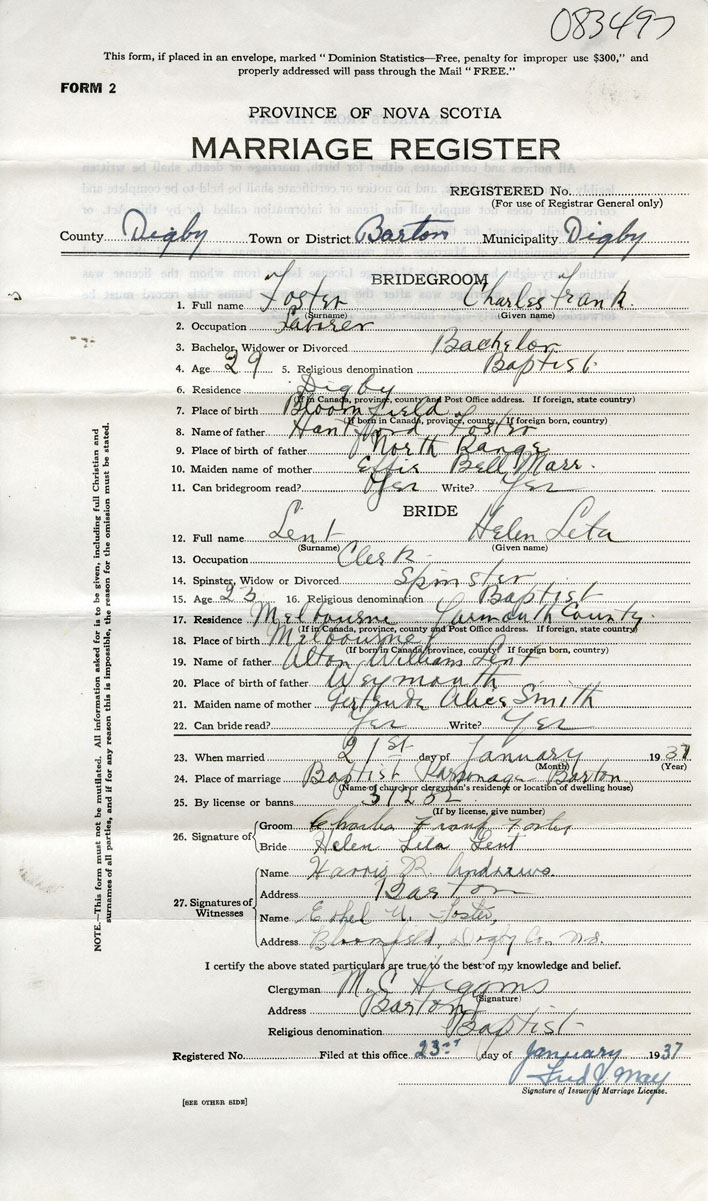 083497
This form, if placed in an envelope, marked "Dominion Statistics—Free, penalty for improper use $300," and
properly addressed will pass through the Mail "FREE."
FORM 2
PROVINCE OF NOVA SCOTIA
MARRIAGE REGISTER
REGISTERED No.
(For use of Registrar General only)
County Digby Town or District Barton Municipality Digby
BRIDEGROOM
1. Full name Foster Charles Frank.
(Surname) (Given name)
2. Occupation Laborer
3. Bachelor, Widower or Divorced Bachelor
4. Age 29 5. Religious denomination Baptist.
6. Residence Digby
(If in Canada, province, county and Post Office address. If foreign, state country)
7. Place of birth Bloomfield
(If born in Canada, province, county. If foreign born, country)
8. Name of father Hantford Foster
9. Place of birth of father North Range
10. Maiden name of mother Effie Bell Marr.
11. Can bridegroom read? Yes Write? Yes
BRIDE
12. Full name Lent Helen Leta
(Surname) (Given name)
13. Occupation Clerk
14. Spinster, Widow or Divorced Spinster
15. Age 23 16. Religious denomination Baptist
17. Residence Melbourne Yarmouth County.
(If in Canada, province, county and Post Office address. If foreign, state country)
18. Place of birth Melbourne
(If born in Canada, province, county. If foreign born, country)
19. Name of father Alton William Lent
20. Place of birth of father Weymouth
21. Maiden name of mother Gertrude Alice Smith
22. Can bride read? Yes Write? Yes
23. When married 21st day of January 1937
(Month) (Year)
24. Place of marriage Baptist Parsonage Barton
(Name of church or clergyman's residence or location of dwelling house)
25. By license or banns 31252
(If by license, give number)
26. Signature of
Groom Charles Frank Foster
Bride Helen Leta Lent
27. Signatures of Witnesses
Name Harris R. Andrews.
Address Barton
Name Ethel M. Foster,
Address Bloomfield, Digby Co., N.S.
I certify the above stated particulars are true to the best of my knowledge and belief.
Clergyman M. C. Higgins
(Signature)
Address Barton
Religious denomination Baptist
Registered No. Filed at this office 23rd day of January 1937
Fred J May
Signature of Issuer of Marriage License.
[SEE OTHER SIDE]
NOTE.—This form must not be mutilated. All information asked for is to be given, including full Christian and
surnames of all parties, and if for any reason this is impossible, the reason for the omission must be stated.